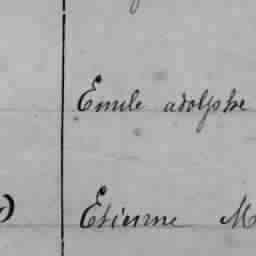 Emile adolphe
Etienne M